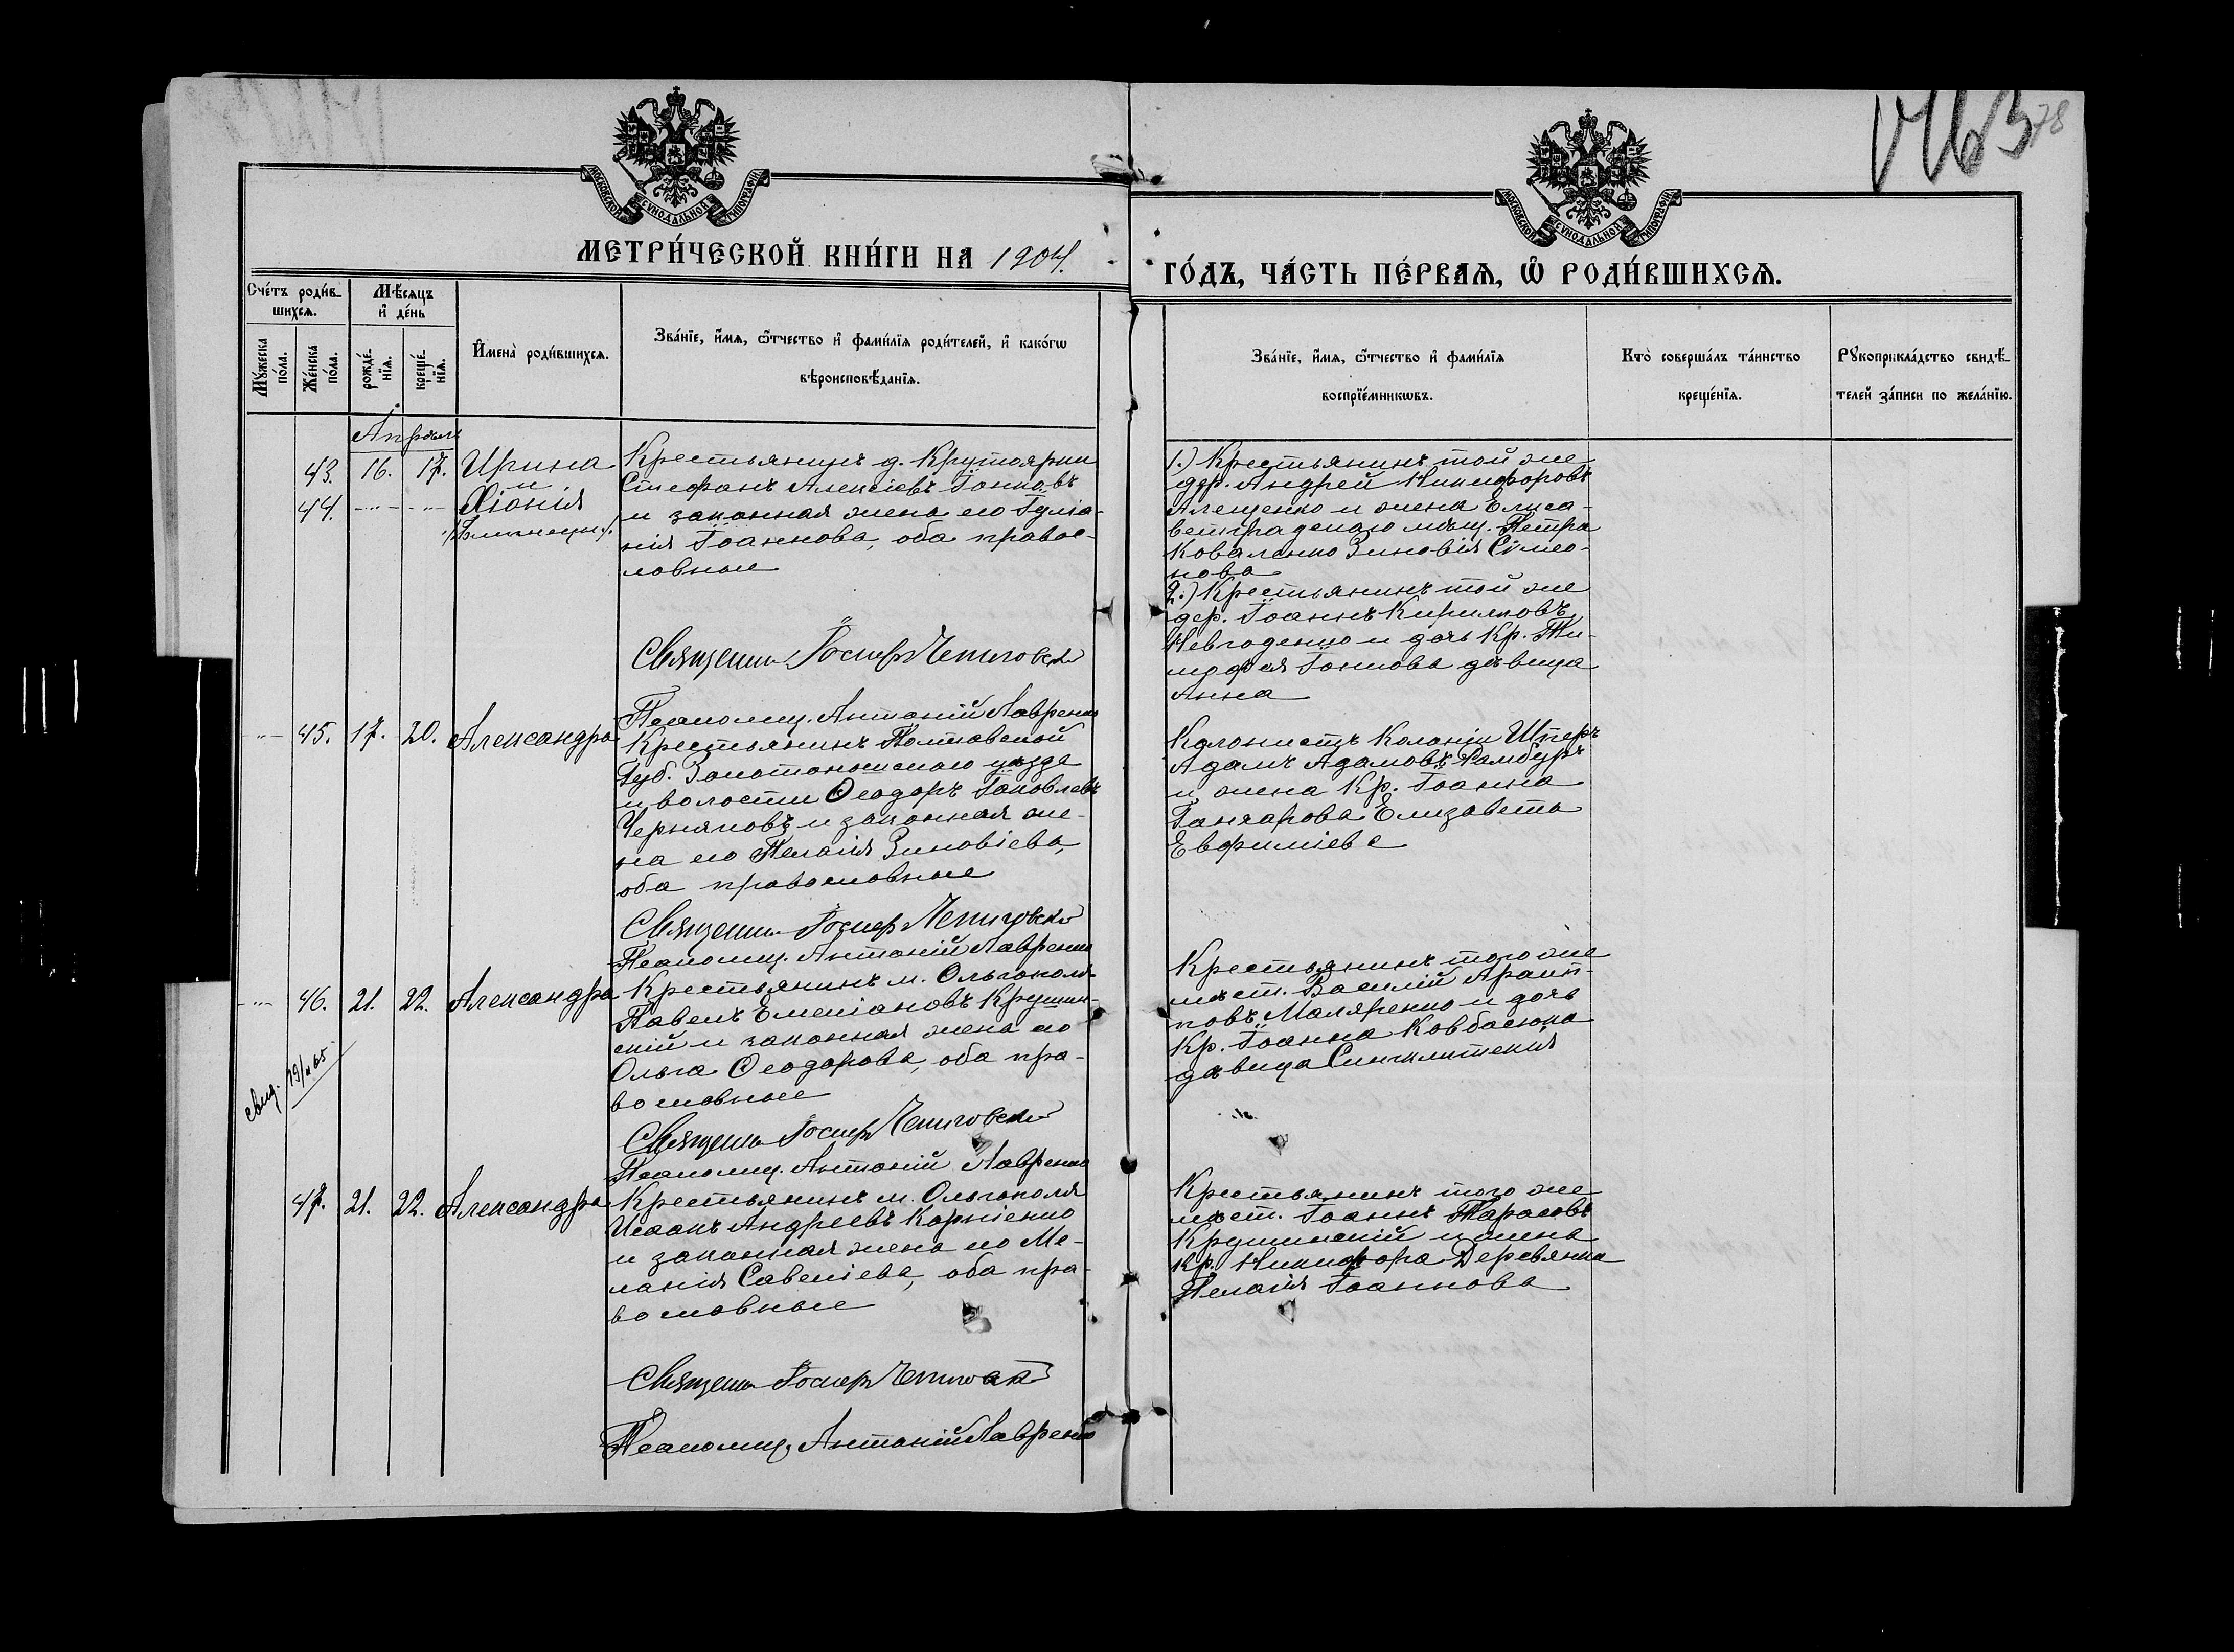 1463
78
МОСКОВСКОЙ СѴНОДАЛЬНОЙ ТИПОГРАФІИ
МОСКОВСКОЙ СѴНОДАЛЬНОЙ ТИПОГРАФІИ
МЕТРИ́ЧЕСКОЙ КНИ́ГИ НА 1904.
ГО́ДЪ, ЧА́СТЬ ПЕ́РВАѦ, Ѡ҆ РОДИ́ВШИХСѦ.
Сче́тъ роди́в-
шихсѧ.
Мѣ́сѧцъ
и҆ де́нь
Мꙋ́жеска
по́ла.
Же́нска
по́ла.
рожде́-
нїѧ.
креще́-
нїѧ.
И҆мена̀ роди́вшихсѧ.
Зва́нїе, и҆́мѧ, ѻ҆́тчество и҆ фами́лїѧ роди́телей, и҆ како́гѡ
вѣроисповѣ́данїѧ.
Зва́нїе, и҆́мѧ, ѻ҆́тчество и҆ фами́лїѧ
воспрїе́мникѡвъ.
Кто̀ соверша́лъ та́инство
креще́нїѧ.
Рꙋкоприкла́дство свидѣ́-
телей за́писи по жела́нїю.
Апрѣль
43. 16. 17. Ирина
и
44. Хіонія
/Близнецы/.
Крестьянинъ д. Крутоярки
Стефанъ Алексіевъ Іонновъ
и законная жена его Іуліа-
нія Іоаннова, оба правос-
лавные
Священ. Іосиф Чепиговскій
Псаломщ. Антоній Лавренко
1.) Крестьянинъ той же
дер. Андрей Никифоровъ
Алещенко и жена Елиса-
ветградскаго мѣщ. Петра
Коваленко Зиновія Сімео-
нова
2.) Крестьянинъ той же
дер. Іоаннъ Кириловъ
Невгоденко и дочь Кр. Ти-
мофея Іоннова дѣвица
Анна
45. 17. 20. Александра
Крестьянинъ Полтавской
Губ. Золотоношскаго уѣзда
и волости Ѳеодоръ Іаковлевъ
Черняковъ и законная же-
на его Пелагія Зиновіева,
оба православные
Священ. Іосиф Чепиговскій
Псаломщ. Антоній Лавренко
Колонистъ Колоніи Шперъ
Адамъ Адамовъ Рамбуръ
и жена Кр. Іоанна
Ганчарова Елизавета
Евфиміева
46. 21. 22. Александра
свид.
Крестьянинъ м. Ольгополя
Павелъ Емеліановъ Крушин-
скій и законная жена его
Ольга Ѳеодорова, оба пра-
вославные
Священ. Іосиф Чепиговскій
Псаломщ. Антоній Лавренко
Крестьянинъ того же
мѣст. Василій Архип-
повъ Маляренко и дочь
Кр. Іоанна Ковбасюка
дѣвица Синклитикія
47. 21. 22. Александра
Крестьянинъ м. Ольгополя
Исаакъ Андреевъ Корніенко
и законная жена его Ме-
ланія Савеліева, оба пра-
вославные
Священ. Іосиф Чепиговскій
Псаломщ. Антоній Лавренко
Крестьянинъ того же
мѣст. Іоаннъ Тарасовъ
Крушинскій и жена
Кр. Никифора Деревянка
Пелагія Іоаннова